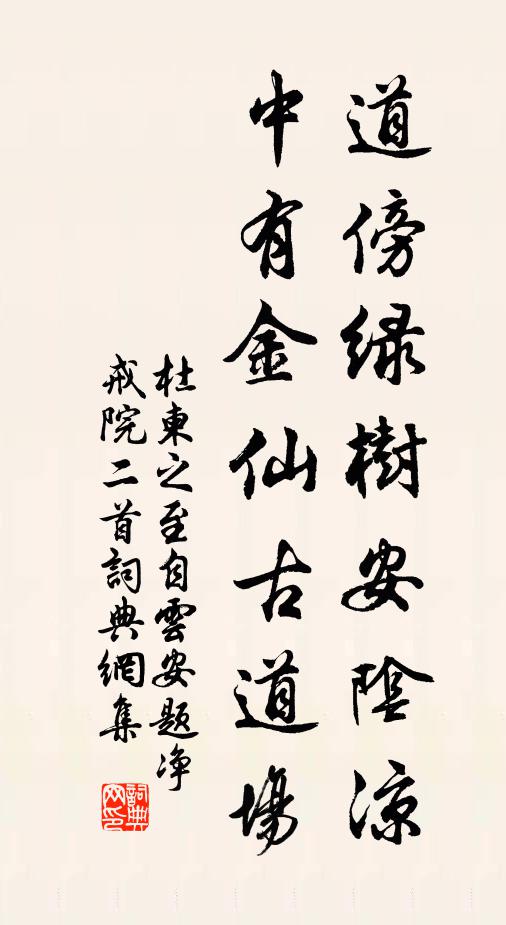 道傍緑樹安陰涼
中有金仙古道場
杜東之至自雲安題净
戒院二首詞典網集
詞典网印